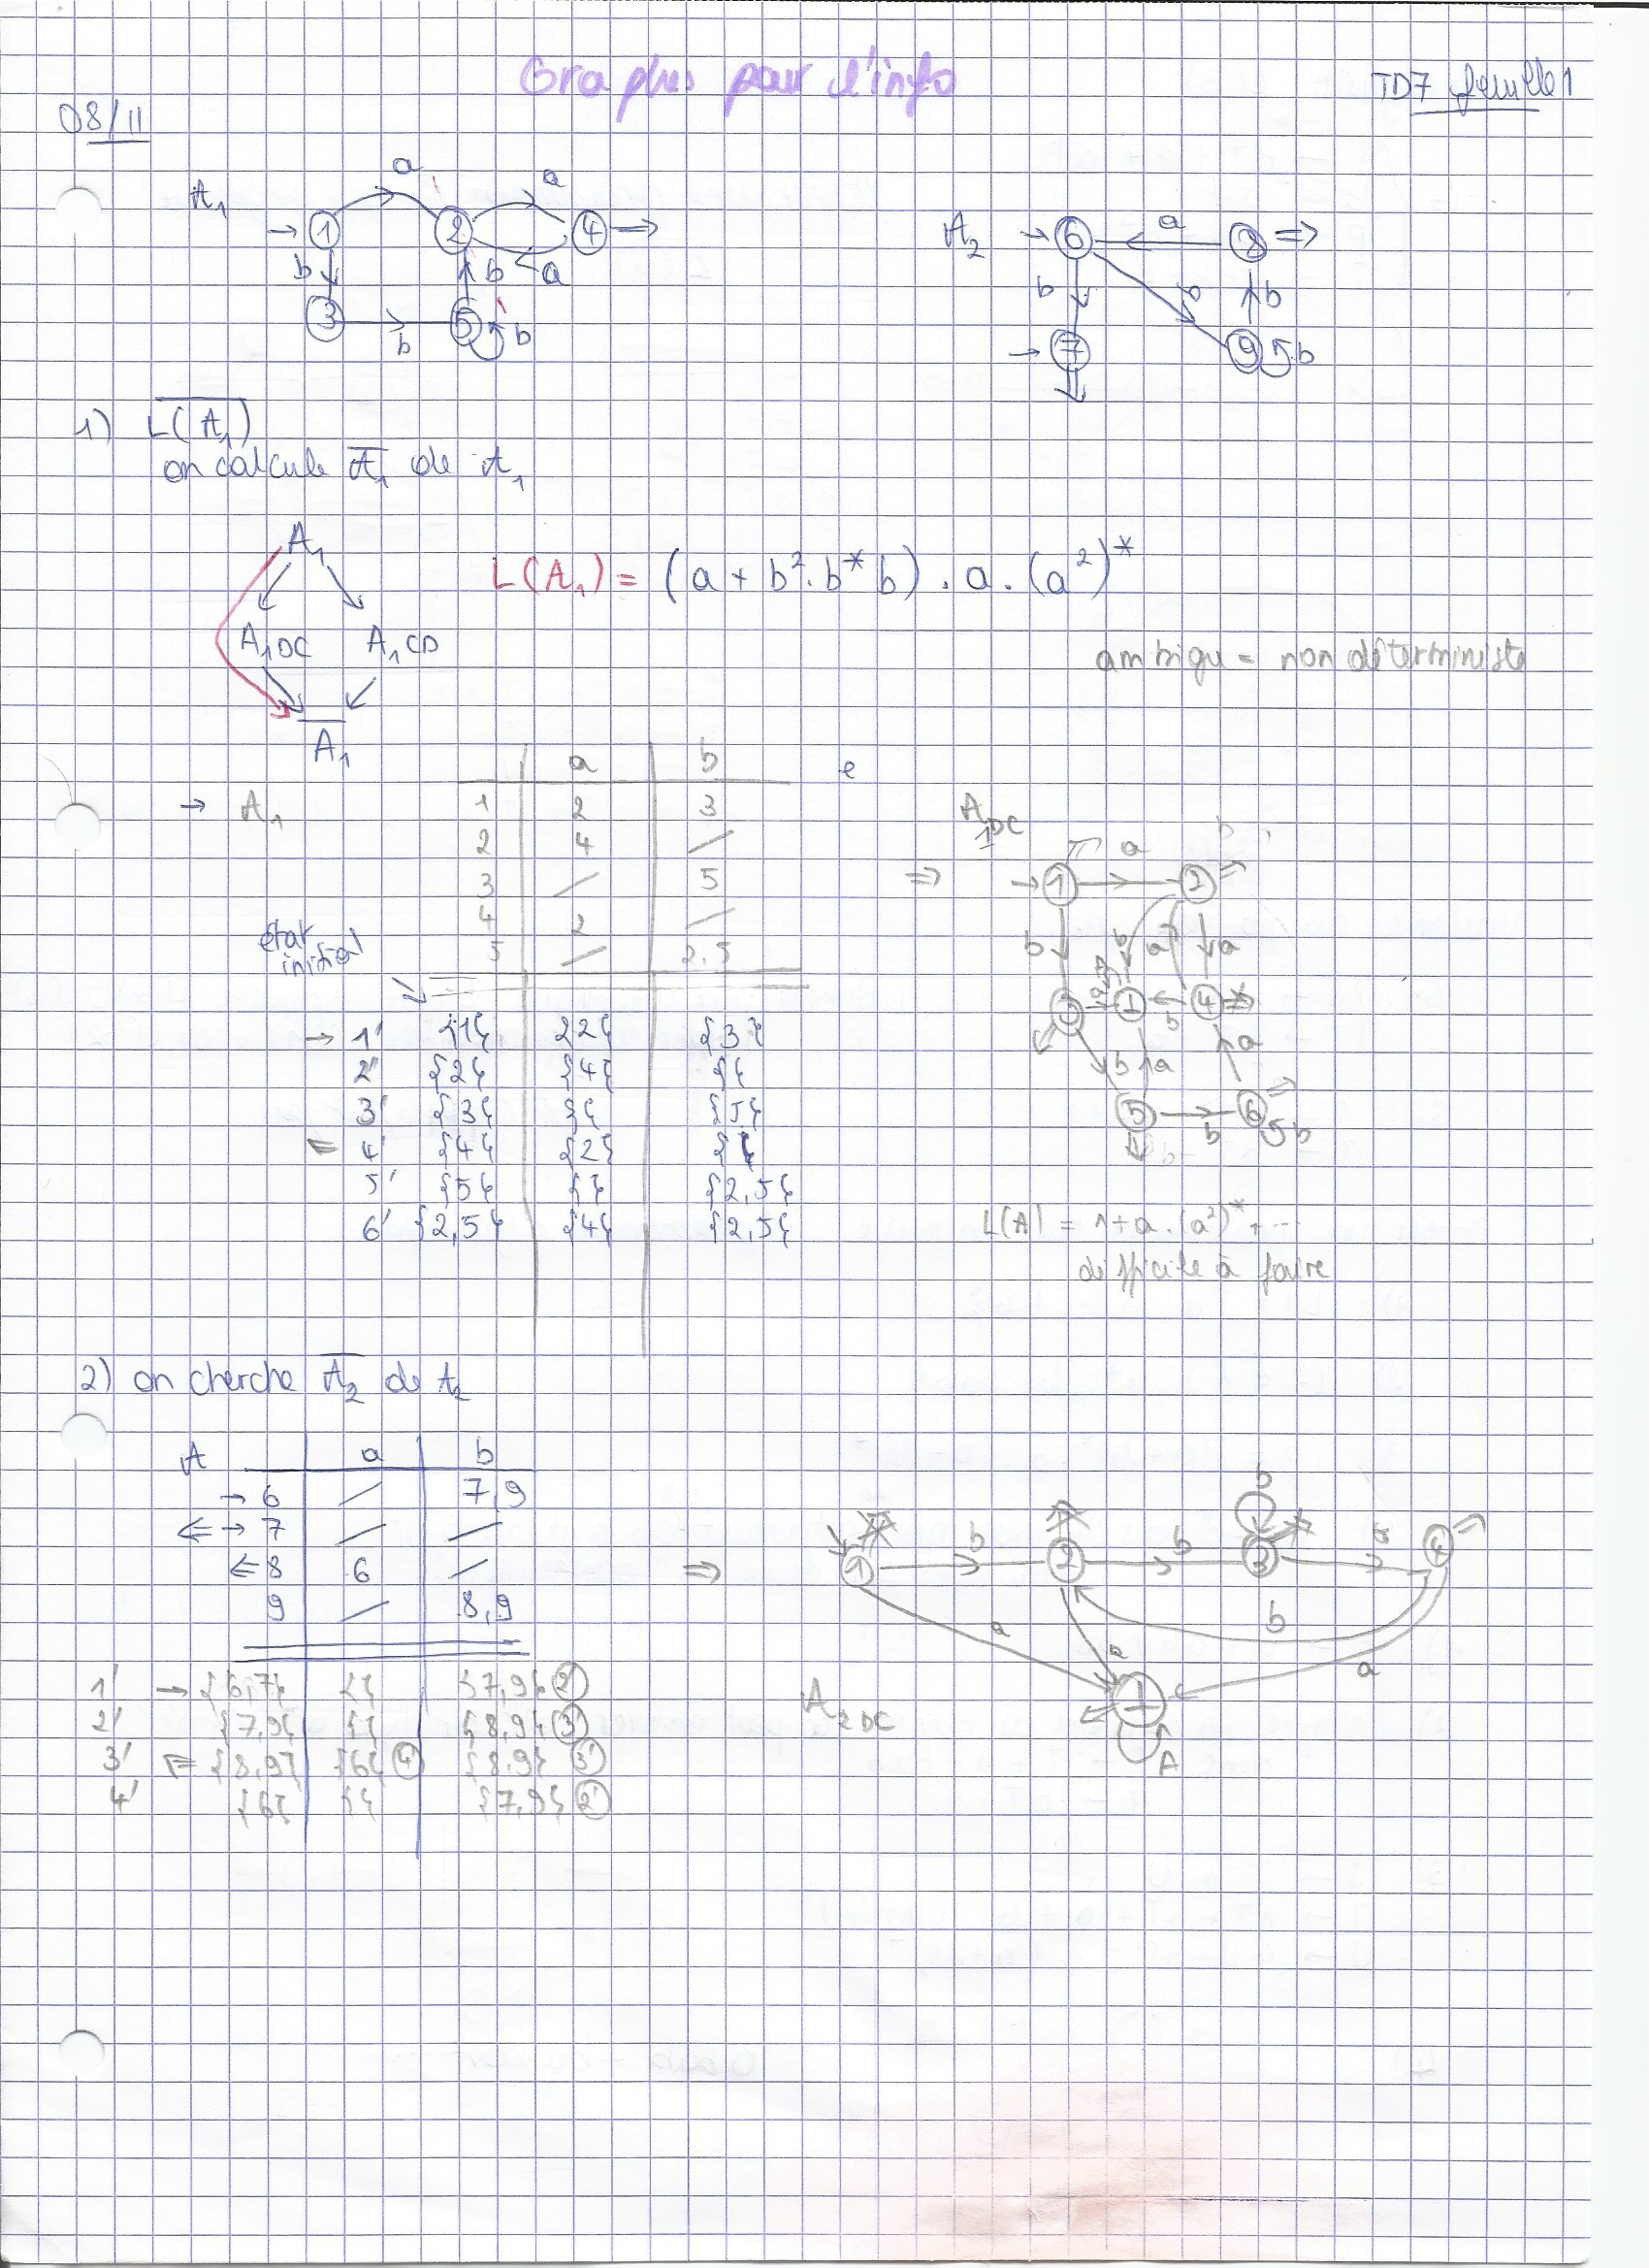 Graphes pour l'info
TD7 feuille 1
08/11
A₁
a a
→ 1 2 4 ⇒
b b a
3 5 b
b
A₂
→ 6 a 8 ⇒
b b b
→ 7 9 b
1) L(A̅₁)
on calcule A̅₁ de A₁
A₁
L(A₁) = (a + b². b* b) . a . (a²)*
A₁DC A₁CD
ambigu = non déterministe
A̅₁
a b e
→ A₁
1 2 3
2 4 /
3 / 5
4 2 /
5 / 2,5
état
initial
→ 1' {1} {2} {3}
2' {2} {4} {}
3' {3} {} {5}
4' {4} {2} {}
5' {5} {} {2,5}
6' {2,5} {4} {2,5}
⇒ A₁DC
→ 1 a 2
b b a a
3 a ⊥ b 4
b a a
5 b 6 b
L(A) = 1+a.(a²)*+...
difficile à faire
2) on cherche A̅₂ de A₂
A a b
→ 6 / 7,9
⇐ → 7 / /
⇐ 8 6 /
9 / 8,9
1' → {6,7} {} {7,9} 2'
2' {7,9} {} {8,9} 3'
3' {8,9} {6} 4' {8,9} 3'
4' {6} {} {7,9} 2'
⇒
b
1 b 2 b 3 a 4
b
a a a
A₂DC
⊥
A